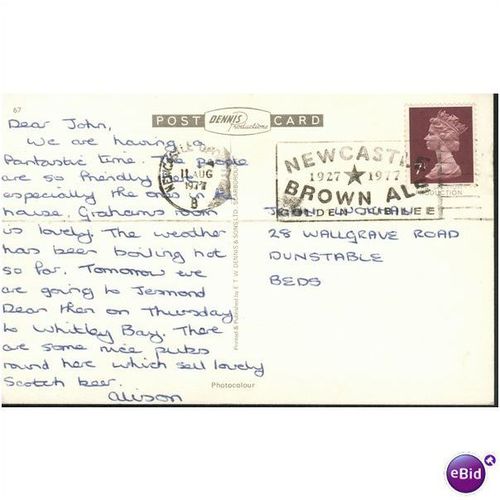 67
POST DENNIS Productions CARD
Dear John,
We are having a
fantastic time. The people
are so friendly
especially the ones in
house. Grahams mom
is lovely. The weather
has been boiling hot
so far. Tomorrow we
are going to Jesmond
Dean then on Thursday
to Whitley Bay. There
are some nice pubs
round here which sell lovely
Scotch beer.
Alison
NEWCASTLE
11 AUG
1977
B
Printed & Published by E.T.W. DENNIS & SONS LTD
Photocolour
NEWCASTLE
1927 ★ 1977
BROWN ALE
GOLDEN JUBILEE
28 WALLGRAVE ROAD
DUNSTABLE
BEDS
eBid